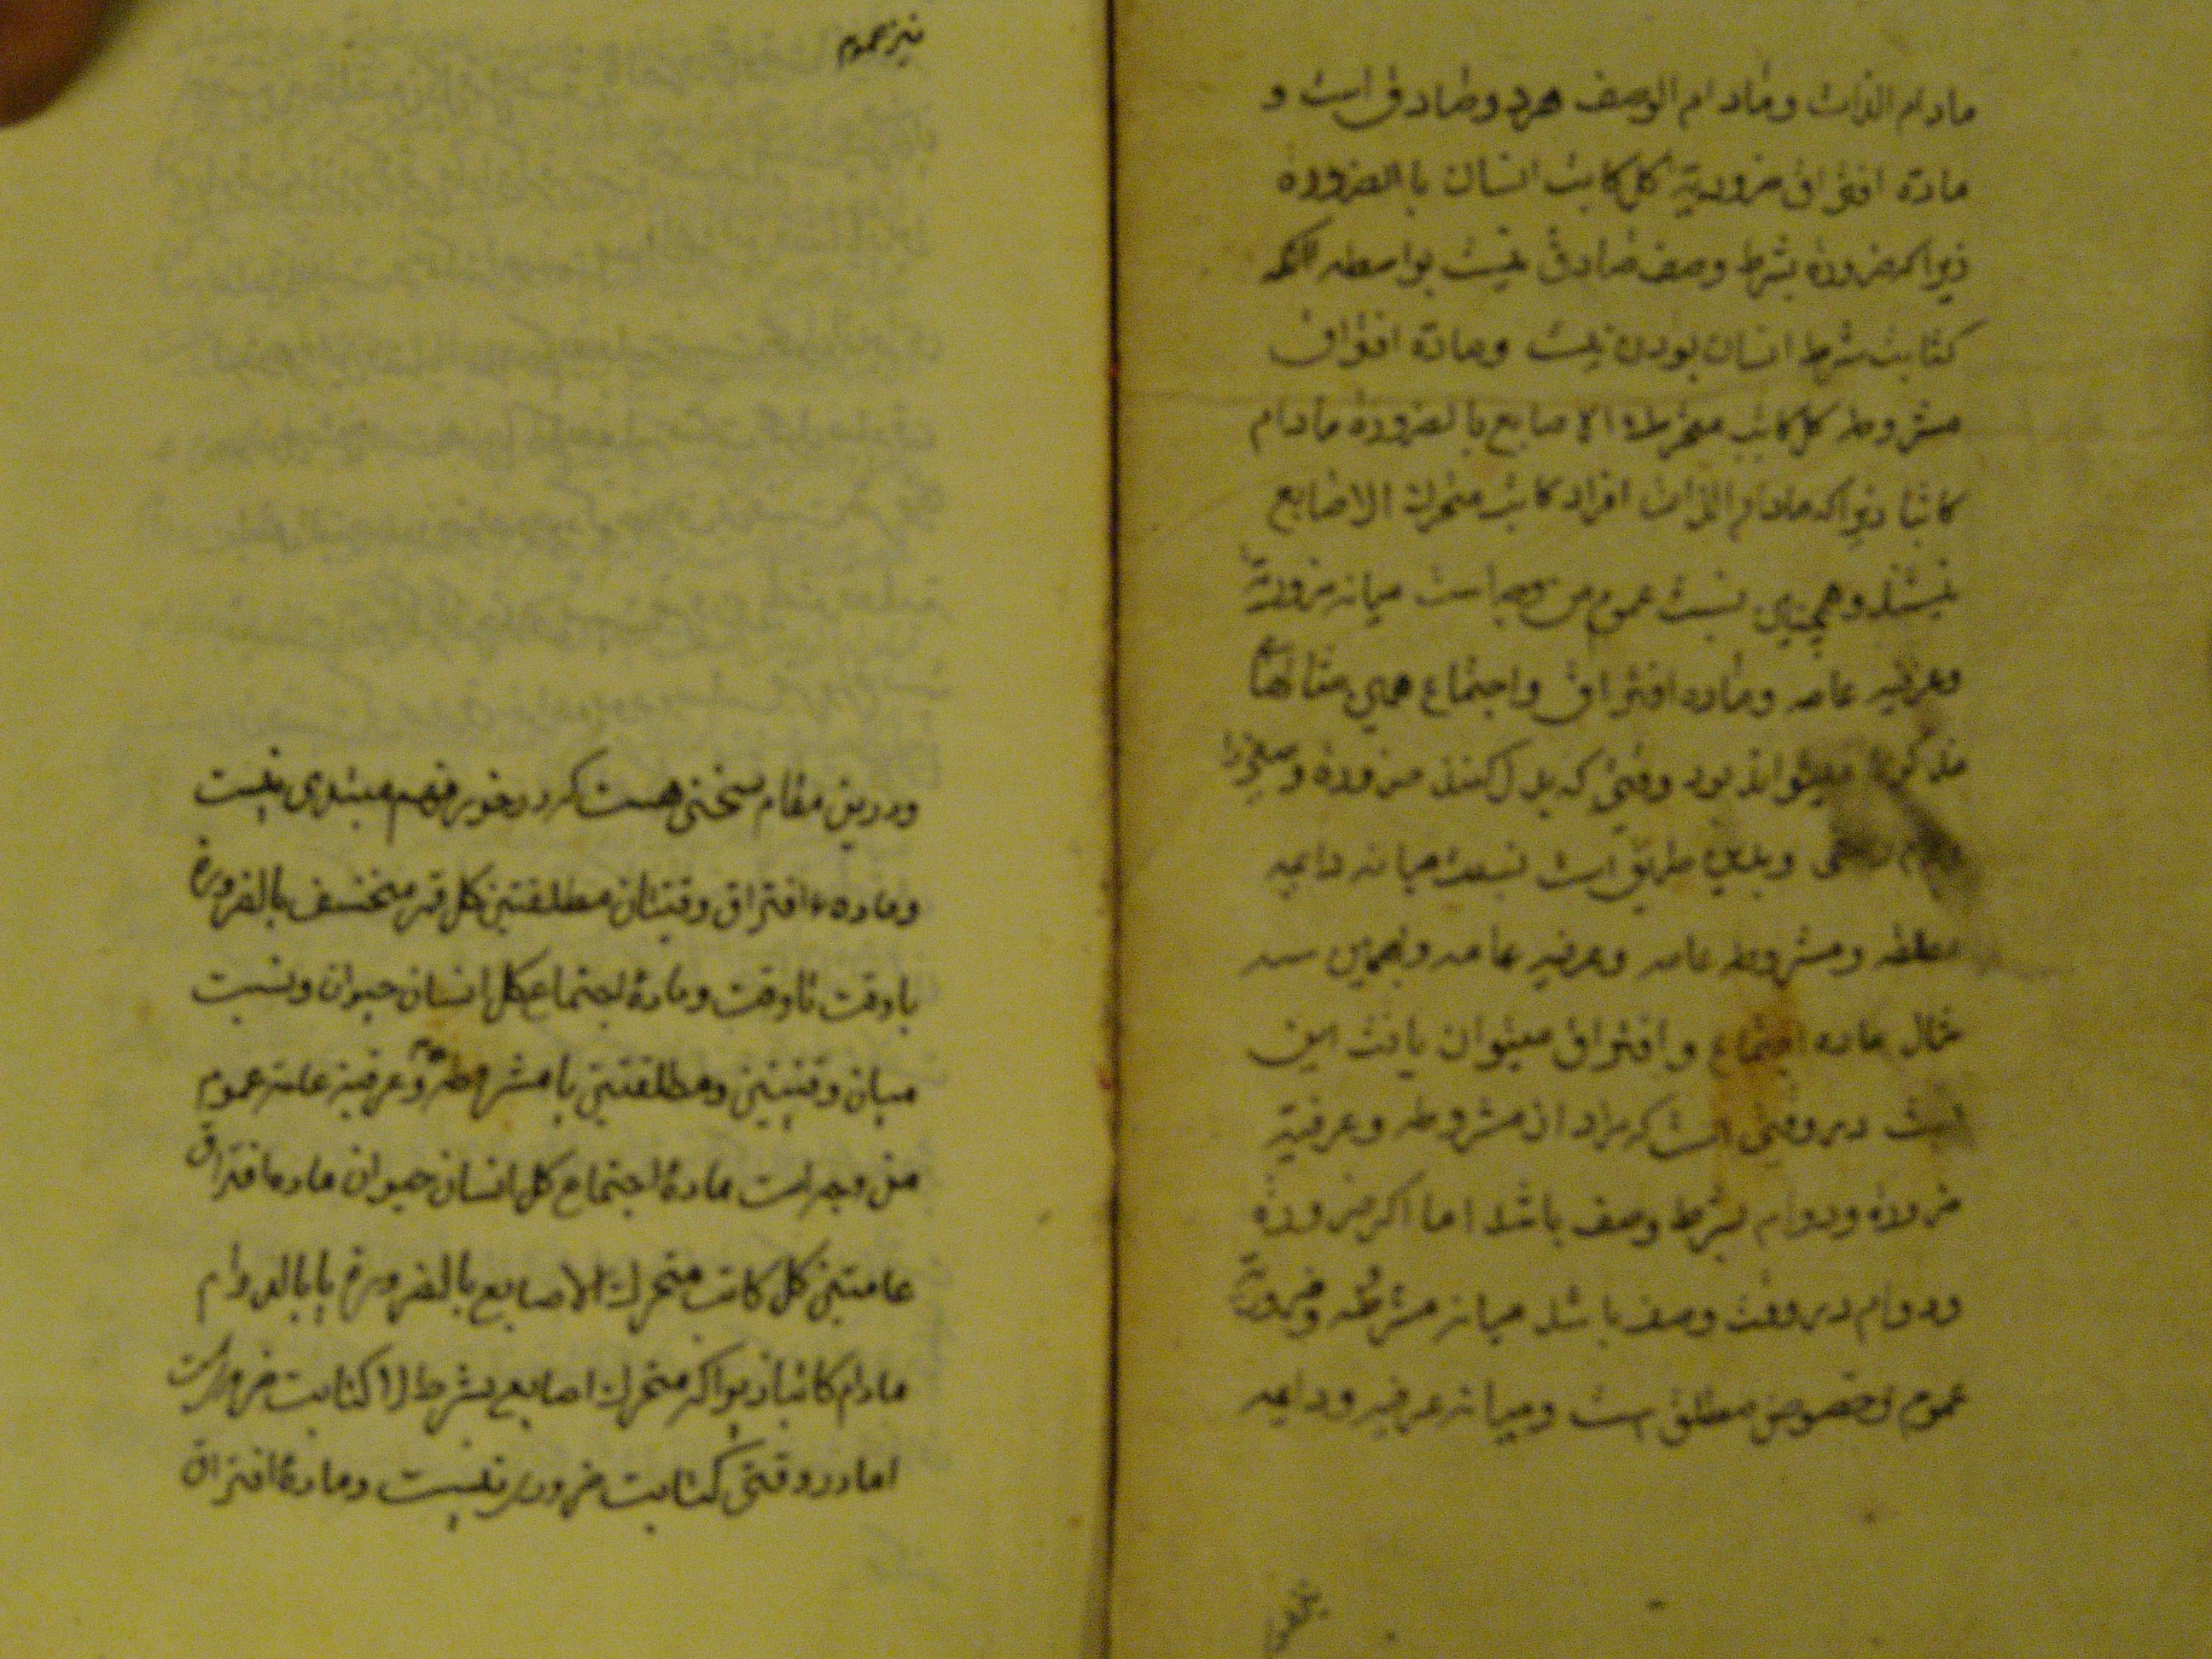 مادام الذات ومادام الوصف هردو صادق است و
ماده افتراق ضروریه کل کاتب انسان بالضروره
زیراکه ضروره بشرط وصف صادق نیست بواسطه آنکه
کتابت شرط انسان بودن نیست وماده افتراق
مشروطه کل کاتب متحرك الاصابع بالضروره مادام
کاتبا زیراکه مادام الذات افراد کاتب متحرك الاصابع
نیستند وهمچنین نسبت عموم من وجه است میانه ضروریه
وعرفیه عامه وماده افتراق واجتماع همین مثالها
میتواند بود وقتی که بدل کنند ضروره
وبدین طریق است نسبت میانه دایمه
مطلقه ومشروطه عامه وعرفیه عامه وهمین سه
مثال ماده اجتماع وافتراق میتوان یافت این
نسبت دروقتی است که مراد از مشروطه وعرفیه
ضروره ودوام بشرط وصف باشد اما اکر ضروره
ودوام دروقت وصف باشد میانه مشروطه وضروریه
عموم وخصوص مطلق است ومیانه عرفیه ودایمه
نیز عموم
ودرین مقام سخنی هست که درخور فهم مبتدی نیست
وماده افتراق وقتیتان مطلقتین کل قمر منخسف بالضروره
یا وقت تا وقت وماده اجتماع کل انسان حیوان ونسبت
میان وقتیتین ومطلقتین با مشروطه وعرفیه عامه عموم
من وجه است ماده اجتماع کل انسان حیوان ماده افتراق
عامتین کل کاتب متحرك الاصابع بالضروره یا بالدوام
مادام کاتبا زیراکه متحرك اصابع بشرط کتابت ضروراست
اما دروقتی کتابت ضرور نیست وماده افتراق